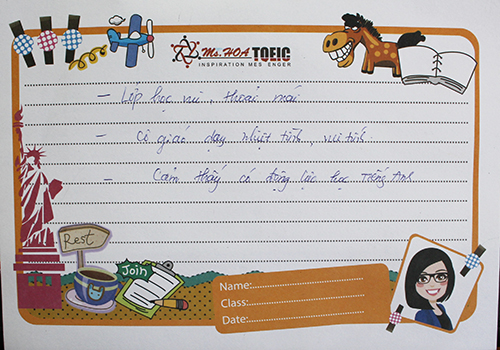 Ms.HOA TOEIC
INSPIRATION MES ENGER
- Lớp học vui, thoải mái
- Cô giáo dạy nhiệt tình, vui tính
- Cảm thấy có động lực học Tiếng Anh
Rest
Join
Name:
Class:
Date: